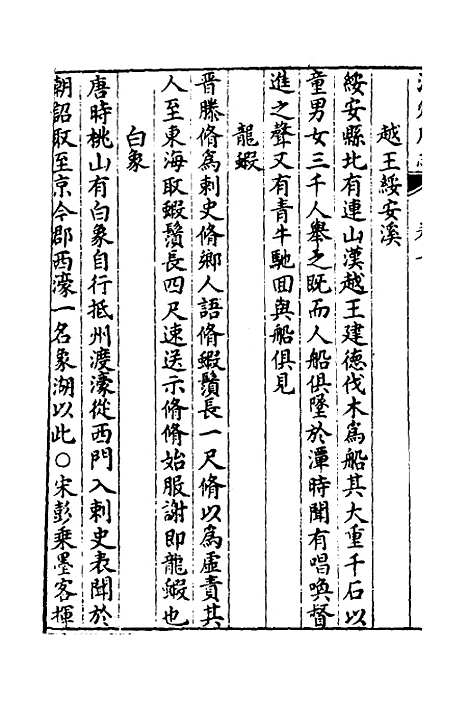 越王綏安溪
綏安縣北有連山漢越王建德伐木爲船其大重千石以
童男女三千人舉之既而人船俱墜於潭時聞有唱喚督
進之聲又有青牛馳回與船俱見
龍蝦
晉滕脩爲刺史脩鄉人語脩蝦鬚長一尺脩以爲虛責其
人至東海取蝦鬚長四尺速送示脩脩始服謝即龍蝦也
白象
唐時桃山有白象自行抵州渡濠從西門入刺史表聞於
朝詔取至京今郡西濠一名象湖以此○宋彭乘墨客揮